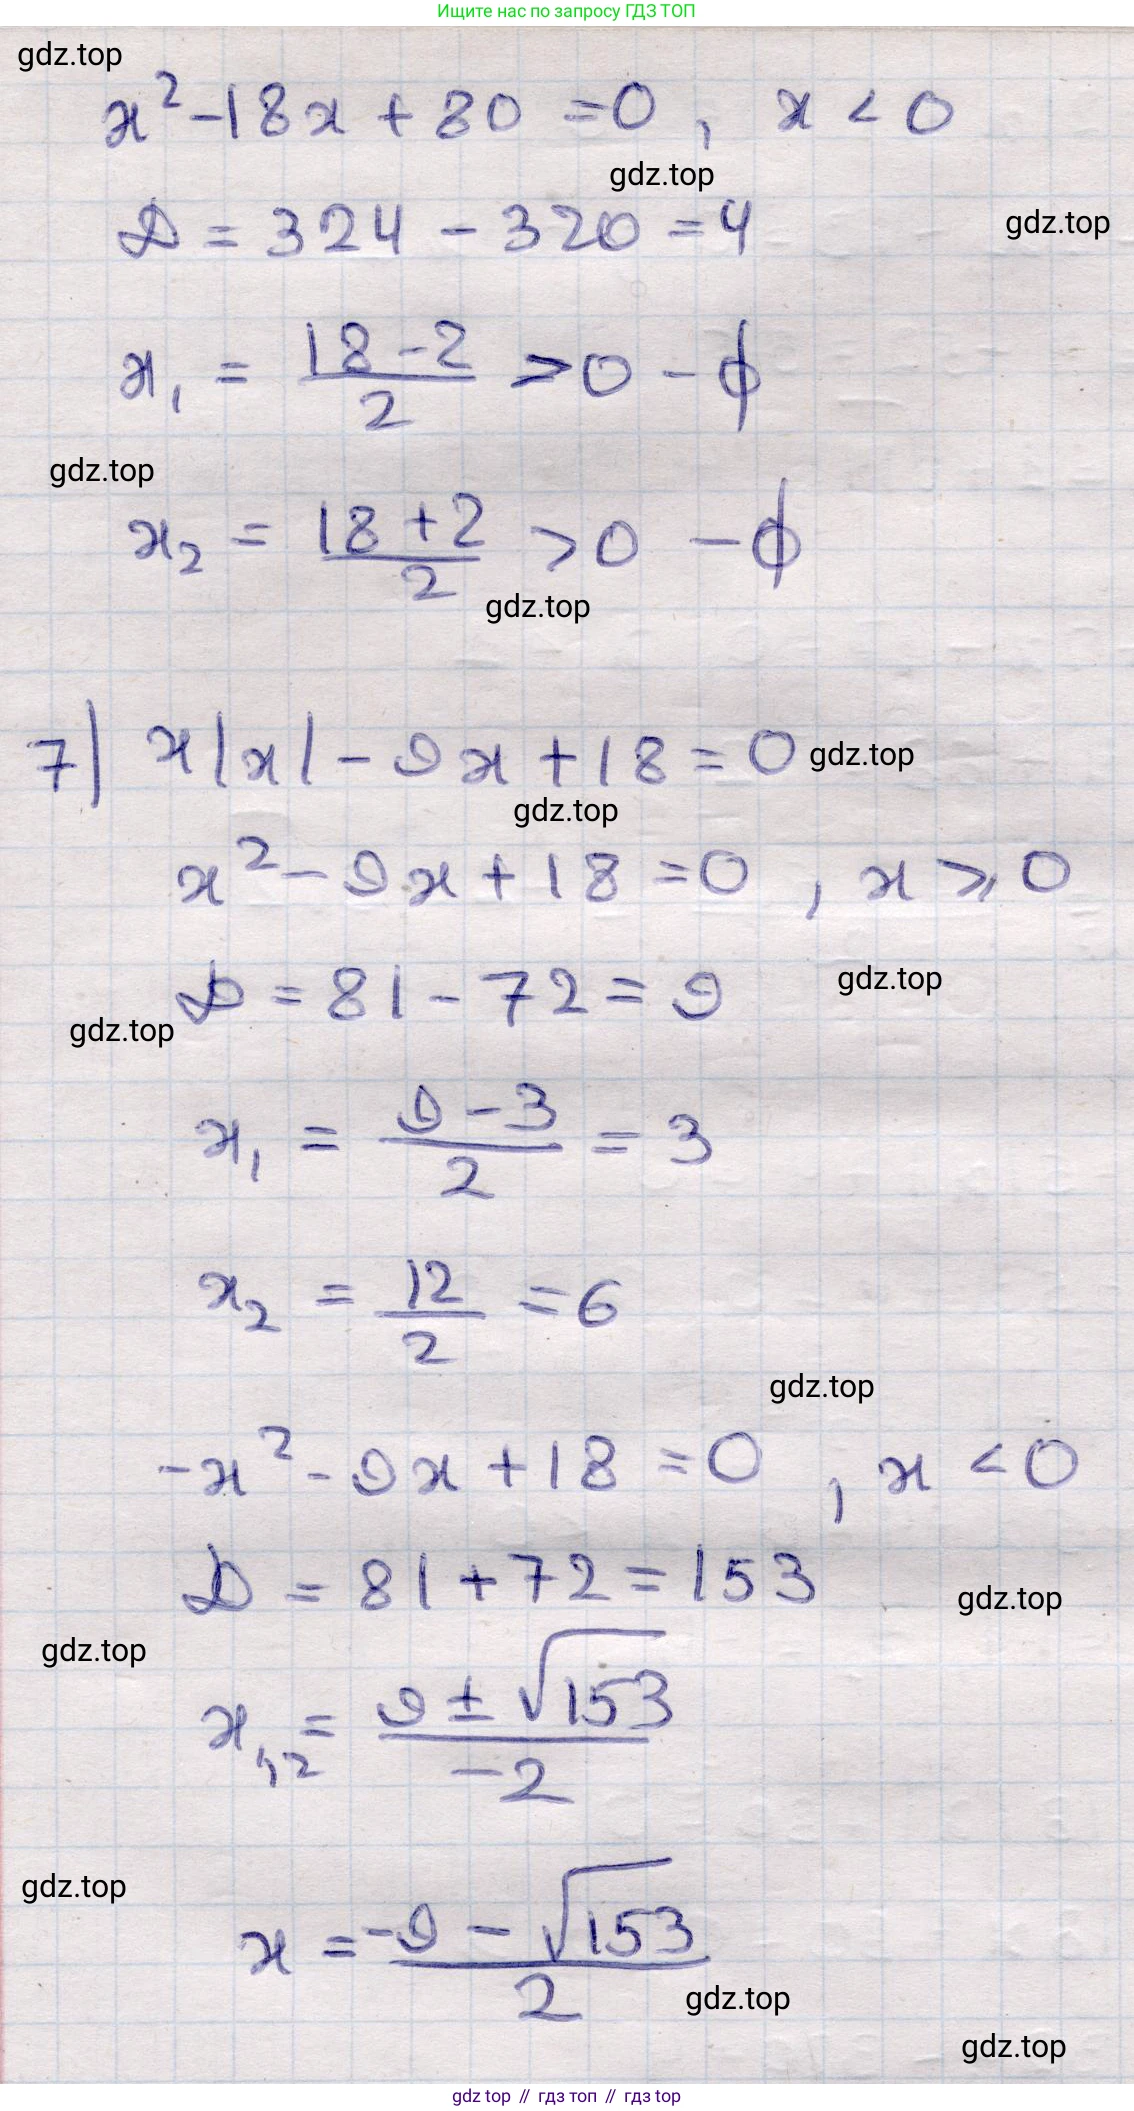 Ищите нас по запросу ГДЗ ТОП
gdz.top
x² - 18x + 80 = 0, x < 0
gdz.top
gdz.top
D = 324 - 320 = 4
x₁ = (18 - 2)/2 > 0 - ϕ
gdz.top
x₂ = (18 + 2)/2 > 0 - ϕ
gdz.top
7) x|x| - 9x + 18 = 0
gdz.top
gdz.top
x² - 9x + 18 = 0, x ⩾ 0
gdz.top
D = 81 - 72 = 9
gdz.top
x₁ = (9 - 3)/2 = 3
x₂ = 12/2 = 6
gdz.top
-x² - 9x + 18 = 0, x < 0
D = 81 + 72 = 153
gdz.top
gdz.top
x₁,₂ = (9 ± √153)/(-2)
gdz.top
x = (-9 - √153)/2
gdz.top
gdz.top
gdz top // гдз топ // гдз top